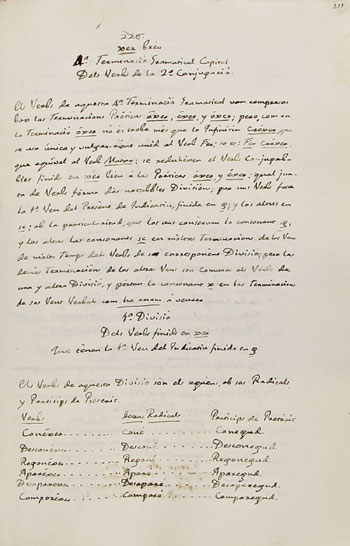 228
xer breu
4ª Terminació Gramatical Capital
Dels Verbs de la 2ª Conjugació.
El Verbs de aquesta 4ª Terminació Gramatical van compresos
baix las Terminacions Poéticas áxer, éxer, y óxer; pero, com en
la Terminació óxer no és troba més que lo Infinitiu Cróxer, que
se usa única y vulgarment unid al Verb Fer;
que aquival al Verb se reduheixen el Verbs Conjugables
finid en xer breu á las Poéticas áxer y éxer; qual
de Verbs forma dos notables Divisions; per uns Verbs
la 1ª Veu del Present de Indicatiu, finida en g; y las altres en
sc; ab la particularitad, que los uns conservan la consonant g,
y los altres las consonants sc en Terminacions de las Veus
de Temps dels Verbs de sa corresponent Divisió; pero la
demés Terminacións de las altres Veus són comunas als Verbs de
una y altra Divisió, y portan la consonant x en las Terminacions
de sas Veus Verbals com ho anam á veurer
1ª Divisió
Dels Verbs finids en xer
Que tenen la 1ª Veu del Indicatiu finida en g
Els Verbs de aquesta Divisió són els seguens, ab sos Radicals
y Participis de Preterit.
Verbs Seus Radicals Participis de Preterit
Conéxer Coné Conegud.
Desconéxer Desconé Desconegud.
Regonéxer Regoné Regonegud.
Aparéxer Aparé Aparegud.
Desaparéxer Desaparé Desaparegud.
Comparéxer Comparé Comparegud.